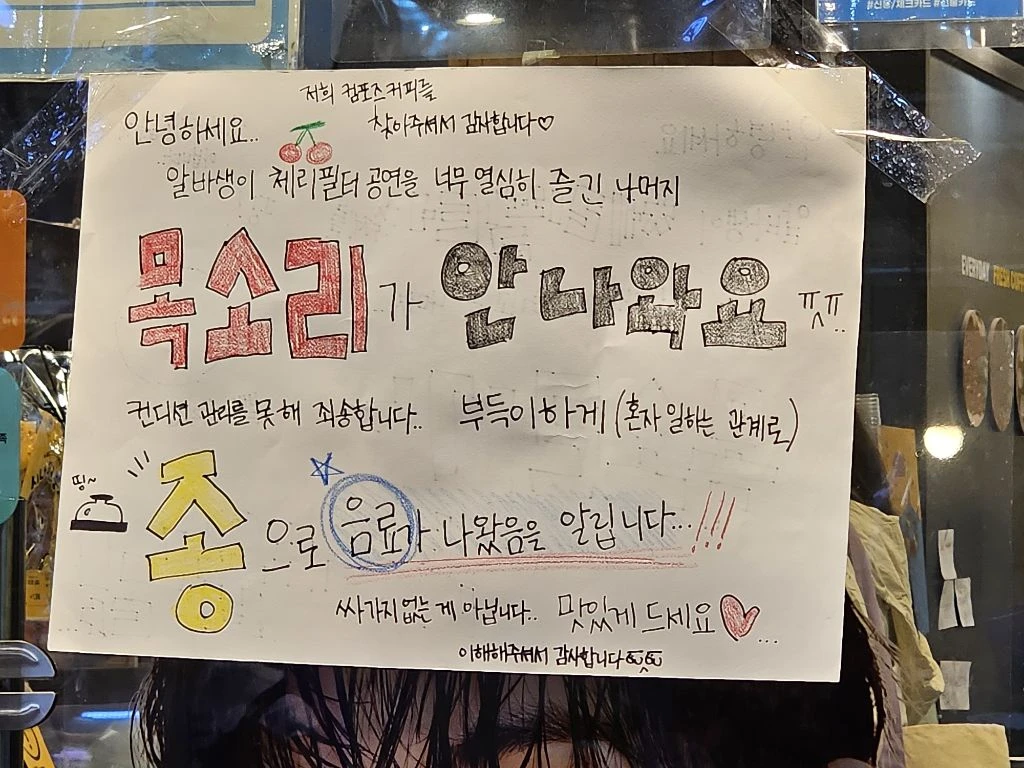 #신용/체크카드 #선불카드
저희 컴포즈커피를
안녕하세요.. 찾아주셔서 감사합니다♡
알바생이 체리필터 공연을 너무 열심히 즐긴 나머지
목소리가 안나와요 ㅠㅅㅠ..
컨디션 관리를 못해 죄송합니다.. 부득이하게 (혼자 일하는 관계로)
띵~
종으로 음료가 나왔음을 알립니다...!!!
싸가지없는 게 아닙니다.. 맛있게 드세요♥...
이해해주셔서 감사합니다
EVERYDAY FRESH COFFEE